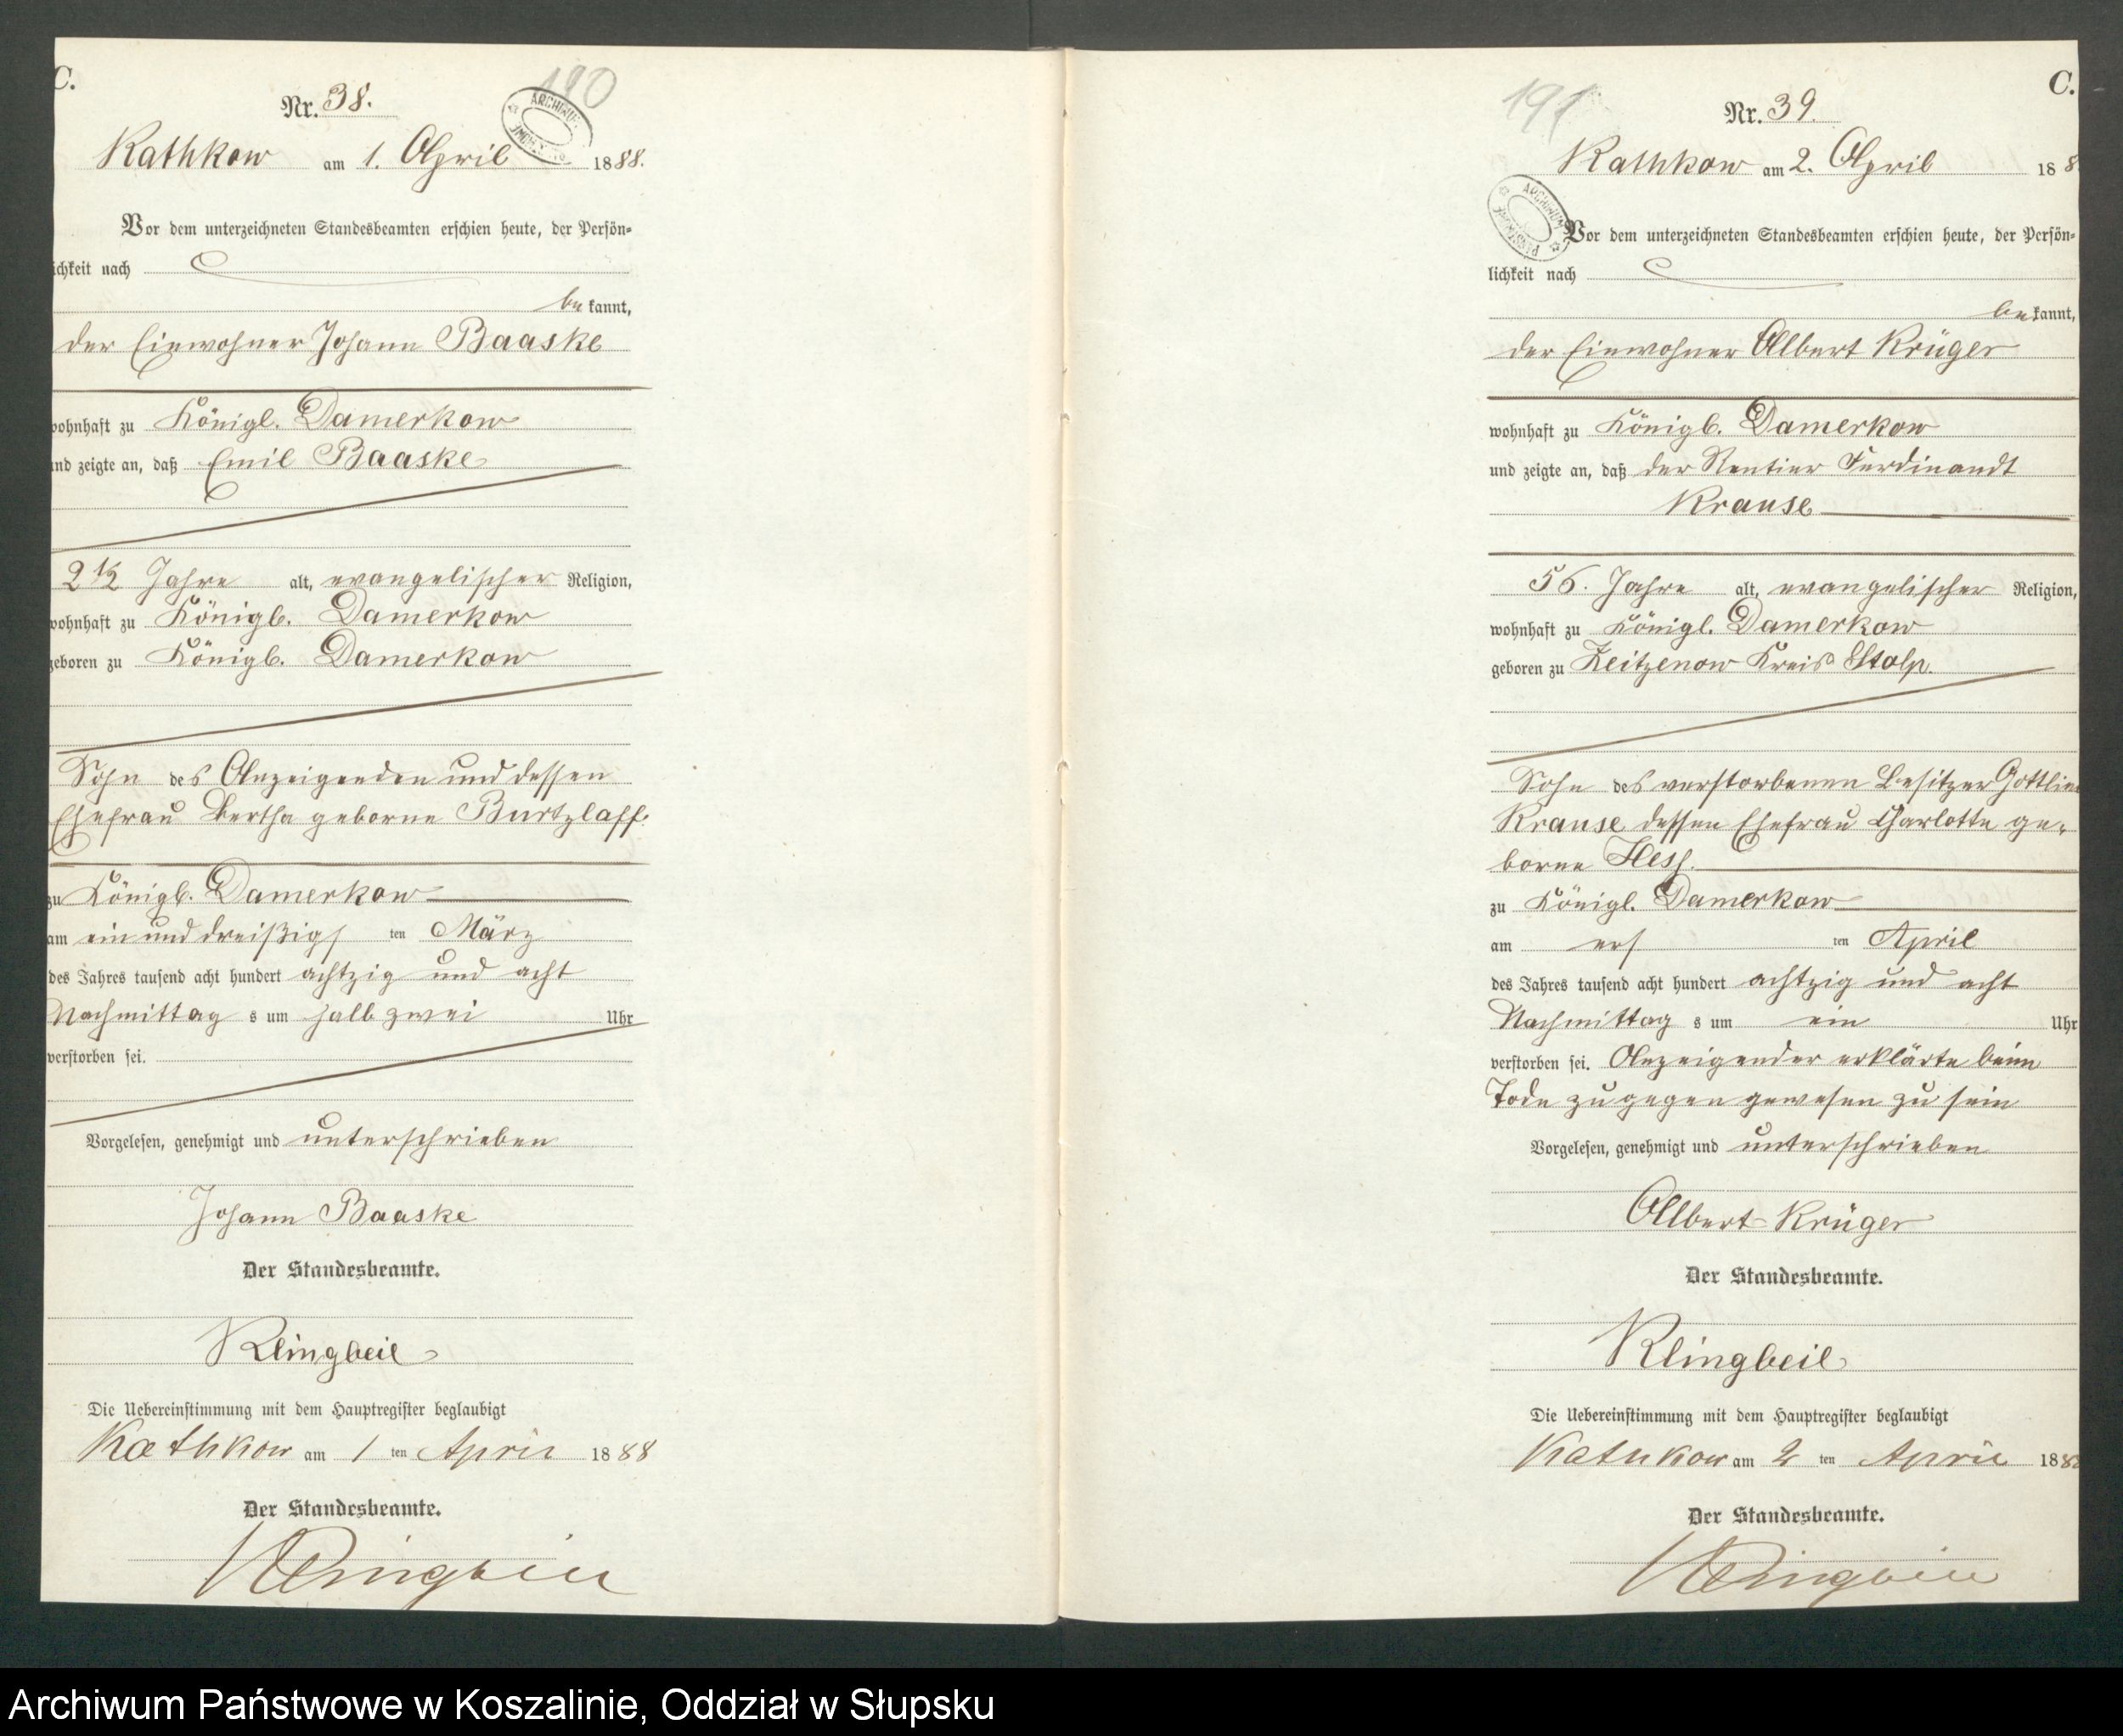 C.
190
Nr. 38.
Kathkow am 1. April 1888.
Vor dem unterzeichneten Standesbeamten erschien heute, der Persön=
ichkeit nach
be kannt,
der Einwohner Johann Baaske
wohnhaft zu Königl. Damerkow
und zeigte an, daß Emil Baaske
2 1/2 Jahre alt, evangelischer Religion,
wohnhaft zu Königl. Damerkow
geboren zu Königl. Damerkow
Sohn des Anzeigenden und dessen
Ehefrau Bertha geborne Burtzlaff.
zu Königl. Damerkow
am ein und dreißigs ten März
des Jahres tausend acht hundert achtzig und acht
Nachmittag s um halb zwei Uhr
verstorben sei.
Vorgelesen, genehmigt und unterschrieben
Johann Baaske
Der Standesbeamte.
Klingbeil
Die Uebereinstimmung mit dem Hauptregister beglaubigt
Kathkow am 1 ten April 1888
Der Standesbeamte.
Klingbeil
C.
191
Nr. 39.
Kathkow am 2. April 188
ARCHIWUM
Vor dem unterzeichneten Standesbeamten erschien heute, der Persön=
lichkeit nach
be kannt,
der Einwohner Albert Krüger
wohnhaft zu Königl. Damerkow
und zeigte an, daß der Rentier Ferdinandt
Krause
56. Jahre alt, evangelischer Religion,
wohnhaft zu Königl. Damerkow
geboren zu Zeitzenow Kreis Stolp.
Sohn des verstorbenen Besitzer Gottlieb
Krause dessen Ehefrau Charlotte ge-
borne Hess.
zu Königl. Damerkow
am ers ten April
des Jahres tausend acht hundert achtzig und acht
Nachmittag s um ein Uhr
verstorben sei. Anzeigender erklärte beim
Tode zugegen gewesen zu sein
Vorgelesen, genehmigt und unterschrieben
Albert Krüger
Der Standesbeamte.
Klingbeil
Die Uebereinstimmung mit dem Hauptregister beglaubigt
Kathkow am 2 ten April 188
Der Standesbeamte.
Klingbeil
Archiwum Państwowe w Koszalinie, Oddział w Słupsku